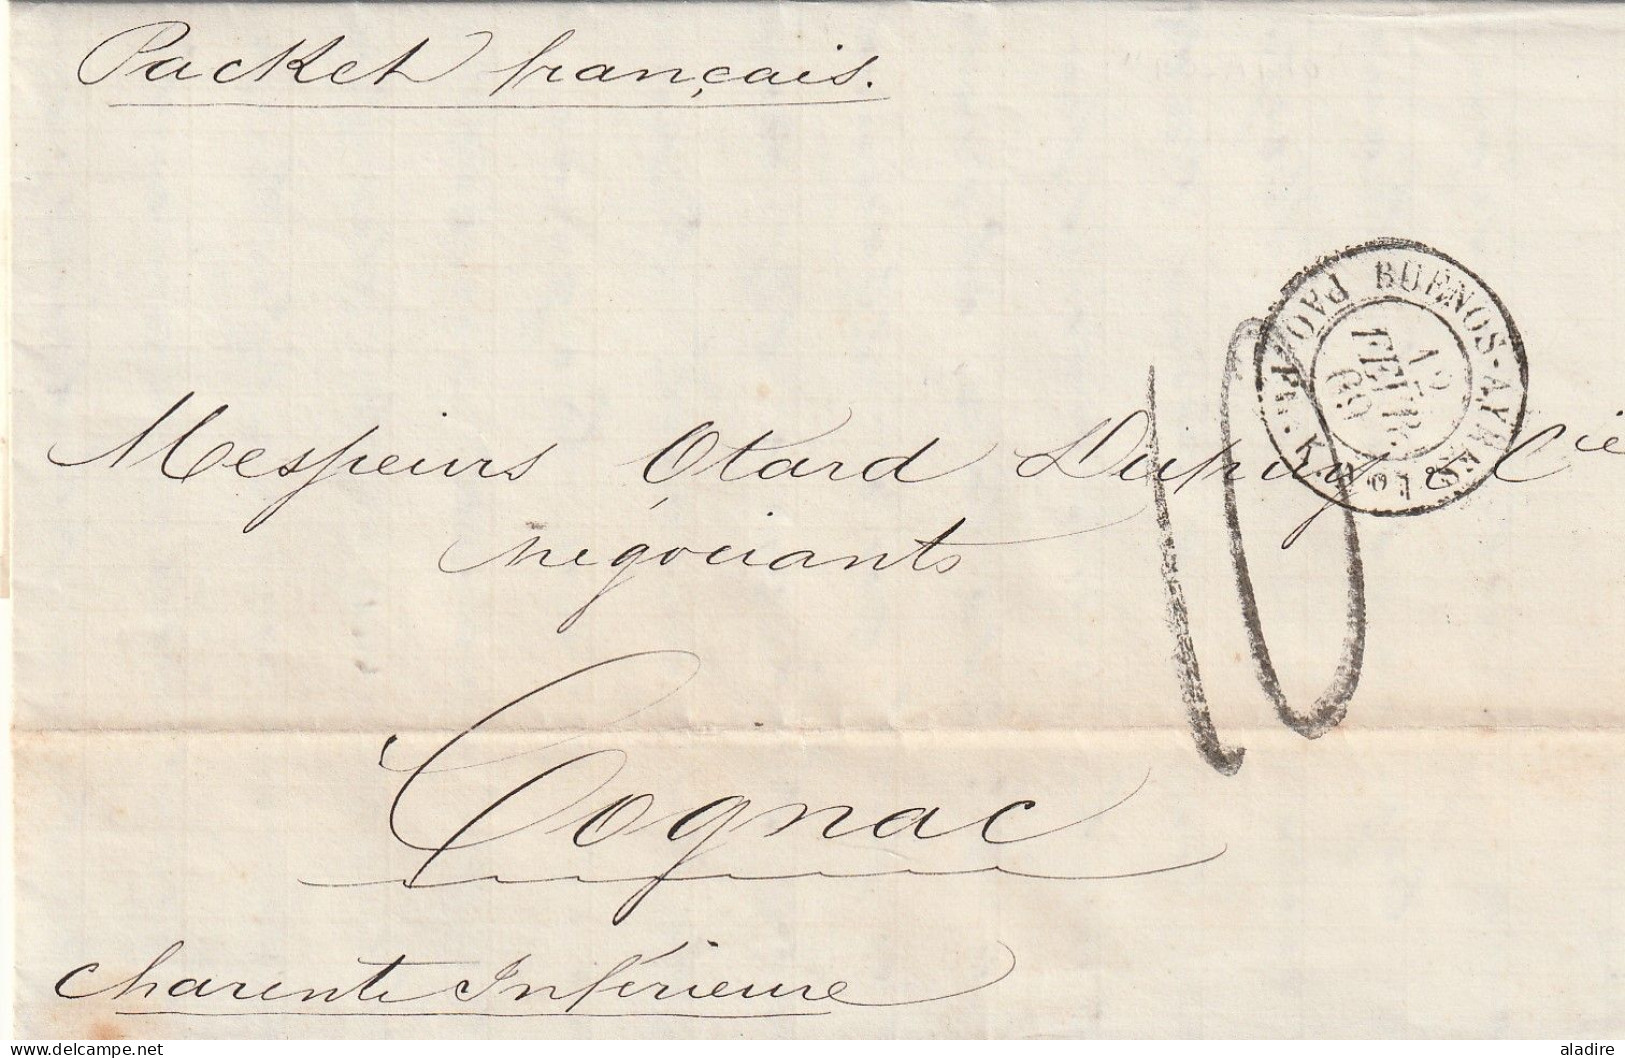 Packet français.
BUENOS-AYRES
PAQ. FR. K. Nº 2
12
FEVR.
69
10
Messieurs Otard Dupuy & Cie
négociants
Cognac
Charente Inférieure
aladire